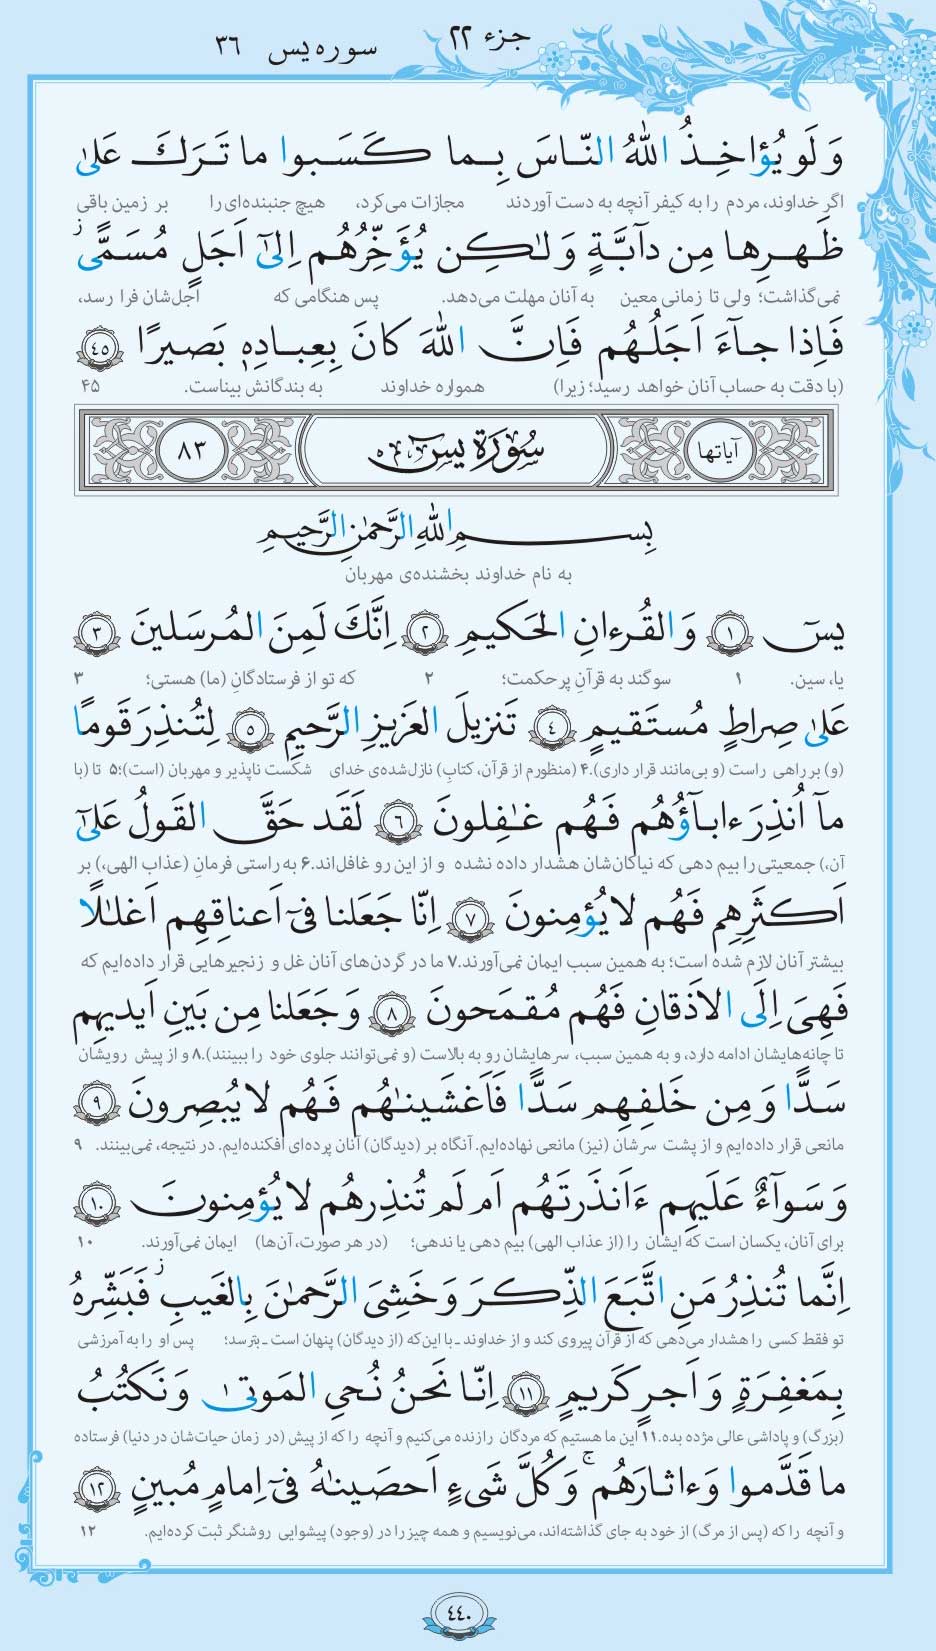 جزء ۲۲
سوره یس ۳۶
وَ لَو يُؤاخِذُ اللّٰهُ النّاسَ بِما كَسَبوا ما تَرَكَ عَلىٰ
اگر خداوند، مردم را به کیفر آنچه به دست آوردند مجازات می‌کرد، هیچ جنبنده‌ای را بر زمین باقی
ظَهرِها مِن دآبَّةٍ وَ لٰكِن يُؤَخِّرُهُم اِلىٰٓ اَجَلٍ مُسَمًّى ۖ
نمی‌گذاشت؛ ولی تا زمانی معین به آنان مهلت می‌دهد. پس هنگامی که اجل‌شان فرا رسد،
فَاِذا جآءَ اَجَلُهُم فَاِنَّ اللّٰهَ كانَ بِعِبادِهٖ بَصيرًا ﴿٤٥﴾
(با دقت به حساب آنان خواهد رسید؛ زیرا) همواره خداوند به بندگانش بیناست. ۴۵
آیاتها
سُورَةُ يسٓ
۸۳
بِسمِ اللّٰهِ الرَّحمٰنِ الرَّحيمِ
به نام خداوند بخشنده‌ی مهربان
يسٓ ﴿١﴾ وَ القُرءانِ الحَكيمِ ﴿٢﴾ اِنَّكَ لَمِنَ المُرسَلينَ ﴿٣﴾
یا، سین. ۱ سوگند به قرآنِ پرحکمت؛ ۲ که تو از فرستادگانِ (ما) هستی؛ ۳
عَلىٰ صِراطٍ مُستَقيمٍ ﴿٤﴾ تَنزيلَ العَزيزِ الرَّحيمِ ﴿٥﴾ لِتُنذِرَ قَومًا
(و) بر راهی راست (و بی‌مانند قرار داری).۴ (منظورم از قرآن، کتابِ) نازل‌شده‌ی خدای شکست ناپذیر و مهربان (است)؛۵ تا (با
مآ اُنذِرَ ءابآؤُهُم فَهُم غٰفِلونَ ﴿٦﴾ لَقَد حَقَّ القَولُ عَلىٰٓ
آن،) جمعیتی را بیم دهی که نیاکان‌شان هشدار داده نشده و از این رو غافل‌اند.۶ به راستی فرمانِ (عذاب الهی،) بر
اَكثَرِهِم فَهُم لا يُؤمِنونَ ﴿٧﴾ اِنّا جَعَلنا فىٓ اَعناقِهِم اَغلٰلًا
بیشتر آنان لازم شده است؛ به همین سبب ایمان نمی‌آورند.۷ ما در گردن‌های آنان غل و زنجیرهایی قرار داده‌ایم که
فَهِىَ اِلَى الاَذقانِ فَهُم مُقمَحونَ ﴿٨﴾ وَ جَعَلنا مِن بَينِ اَيديهِم
تا چانه‌هایشان ادامه دارد، و به همین سبب، سرهایشان رو به بالاست (و نمی‌توانند جلوی خود را ببینند).۸ و از پیش رویشان
سَدًّا وَ مِن خَلفِهِم سَدًّا فَاَغشَينٰهُم فَهُم لا يُبصِرونَ ﴿٩﴾
مانعی قرار داده‌ایم و از پشت سرشان (نیز) مانعی نهاده‌ایم. آنگاه بر (دیدگان) آنان پرده‌ای افکنده‌ایم. در نتیجه، نمی‌بینند. ۹
وَ سَوآءٌ عَلَيهِم ءَاَنذَرتَهُم اَم لَم تُنذِرهُم لا يُؤمِنونَ ﴿١٠﴾
برای آنان، یکسان است که ایشان را (از عذاب الهی) بیم دهی یا ندهی؛ (در هر صورت، آن‌ها) ایمان نمی‌آورند. ۱۰
اِنَّما تُنذِرُ مَنِ اتَّبَعَ الذِّكرَ وَ خَشِىَ الرَّحمٰنَ بِالغَيبِ ۖ فَبَشِّرهُ
تو فقط کسی را هشدار می‌دهی که از قرآن پیروی کند و از خداوند ـ با این‌که (از دیدگان) پنهان است ـ بترسد؛ پس او را به آمرزشی
بِمَغفِرَةٍ وَ اَجرٍ كَريمٍ ﴿١١﴾ اِنّا نَحنُ نُحىِ المَوتىٰ وَ نَكتُبُ
(بزرگ) و پاداشی عالی مژده بده.۱۱ این ما هستیم که مردگان را زنده می‌کنیم و آنچه را که از پیش (در زمان حیات‌شان در دنیا) فرستاده
ما قَدَّموا وَ ءاثارَهُم ۚ وَ كُلَّ شَىءٍ اَحصَينٰهُ فىٓ اِمامٍ مُبينٍ ﴿١٢﴾
و آنچه را که (پس از مرگ) از خود به جای گذاشته‌اند، می‌نویسیم و همه چیز را در (وجود) پیشوایی روشنگر ثبت کرده‌ایم. ۱۲
۴۴۰